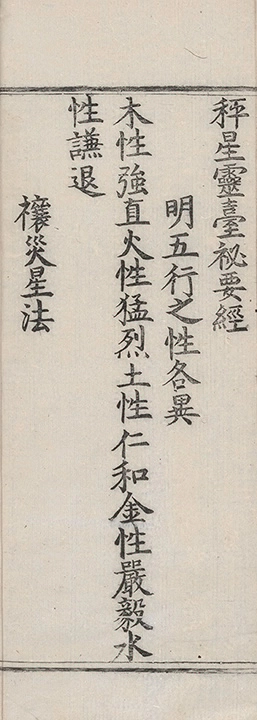 秤星靈臺祕要經
明五行之性各異
木性強直火性猛烈土性仁和金性嚴毅水
性謙退
禳災星法